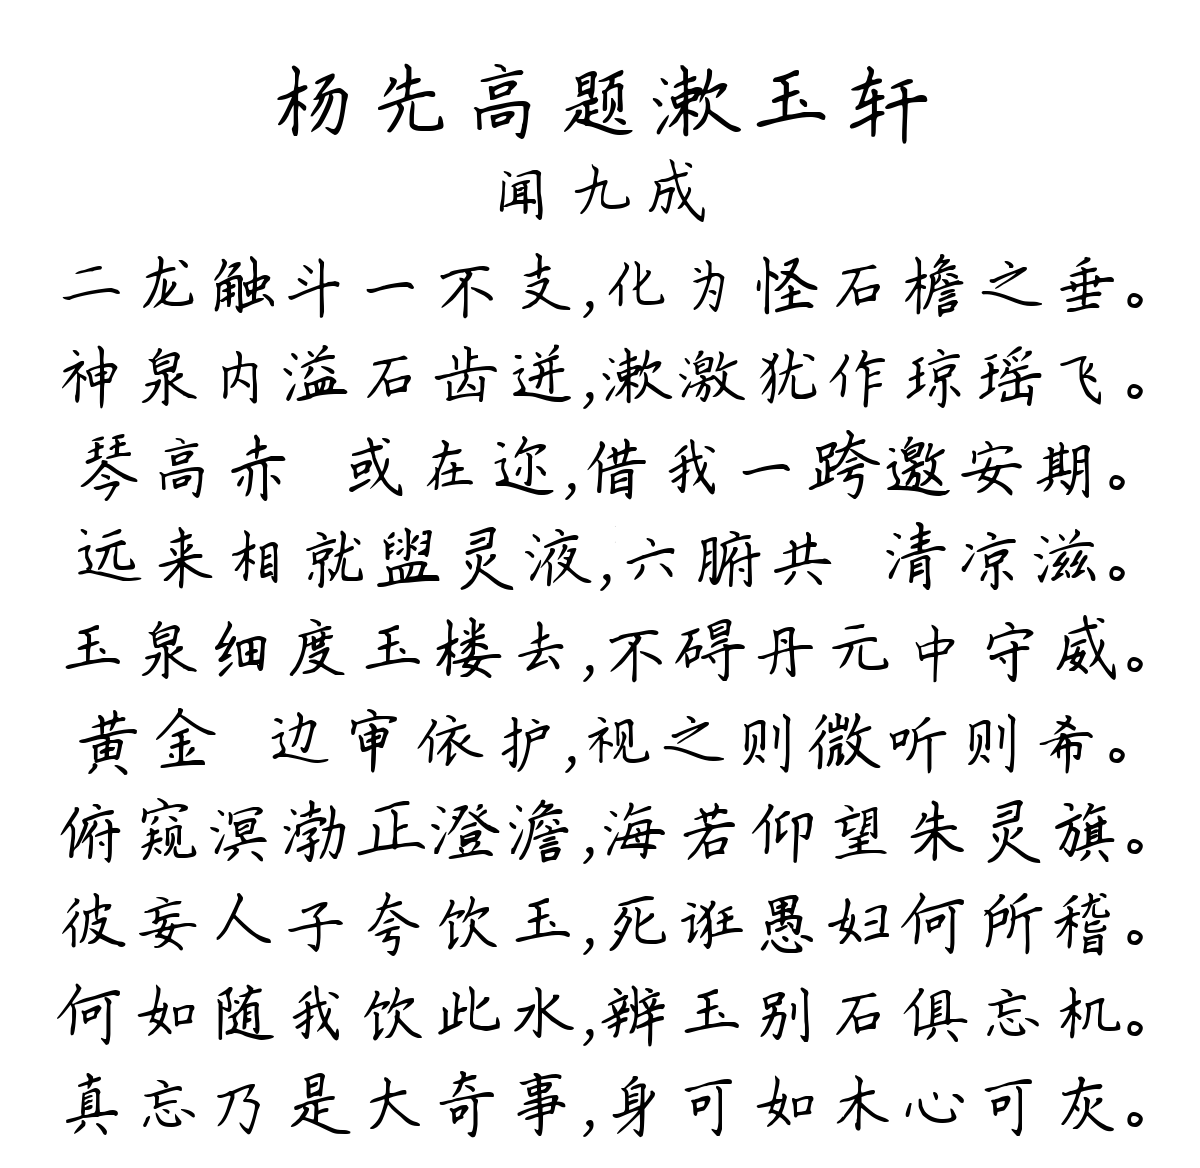 杨先高题漱玉轩
闻九成
二龙触斗一不支,化为怪石檐之垂。
神泉内溢石齿迸,漱激犹作琼瑶飞。
琴高赤 或在迩,借我一跨邀安期。
远来相就盥灵液,六腑共 清凉滋。
玉泉细度玉楼去,不碍丹元中守威。
黄金 边审依护,视之则微听则希。
俯窥溟渤正澄澹,海若仰望朱灵旗。
彼妄人子夸饮玉,死诳愚妇何所稽。
何如随我饮此水,辨玉别石俱忘机。
真忘乃是大奇事,身可如木心可灰。